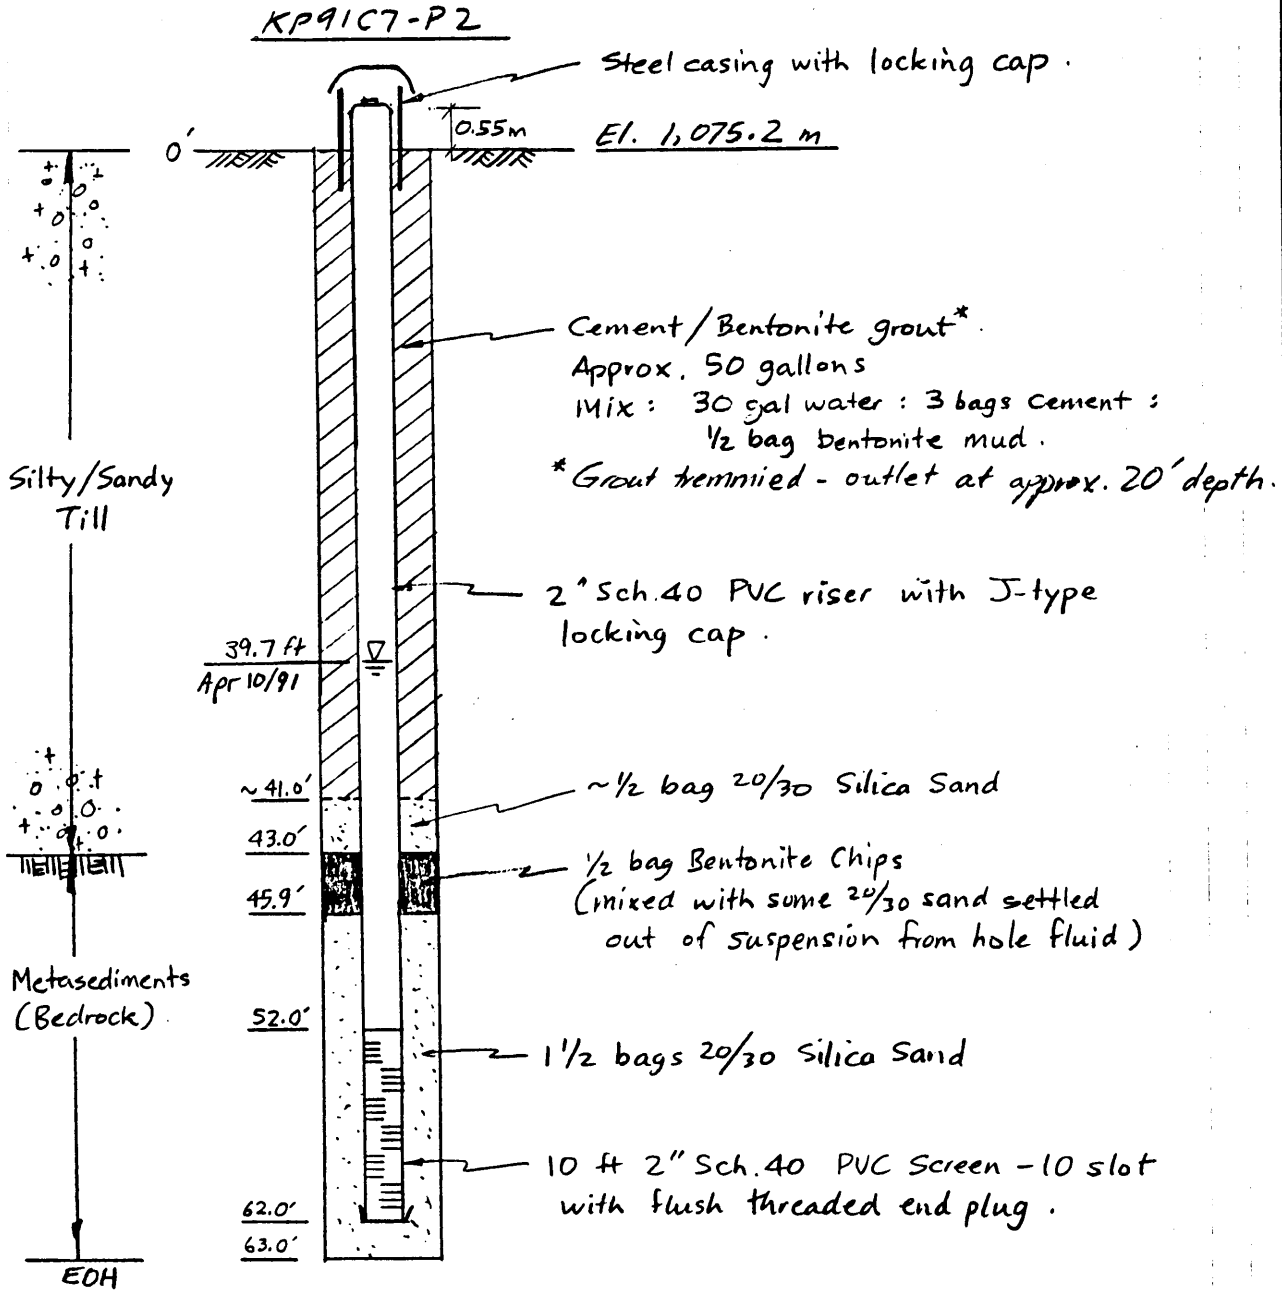 KP91C7-P2
Steel casing with locking cap.
0.55m
El. 1,075.2 m
0'
Cement/Bentonite grout*.
Approx. 50 gallons
Mix: 30 gal water : 3 bags cement :
1/2 bag bentonite mud.
*Grout tremmied - outlet at approx. 20' depth.
Silty/Sandy
Till
2" Sch.40 PVC riser with J-type
locking cap.
39.7 ft
Apr 10/91
~41.0'
~1/2 bag 20/30 Silica Sand
43.0'
1/2 bag Bentonite Chips
(mixed with some 20/30 sand settled
out of suspension from hole fluid)
45.9'
Metasediments
(Bedrock).
52.0'
1 1/2 bags 20/30 Silica Sand
10 ft 2" Sch.40 PVC Screen - 10 slot
with flush threaded end plug.
62.0'
63.0'
EOH